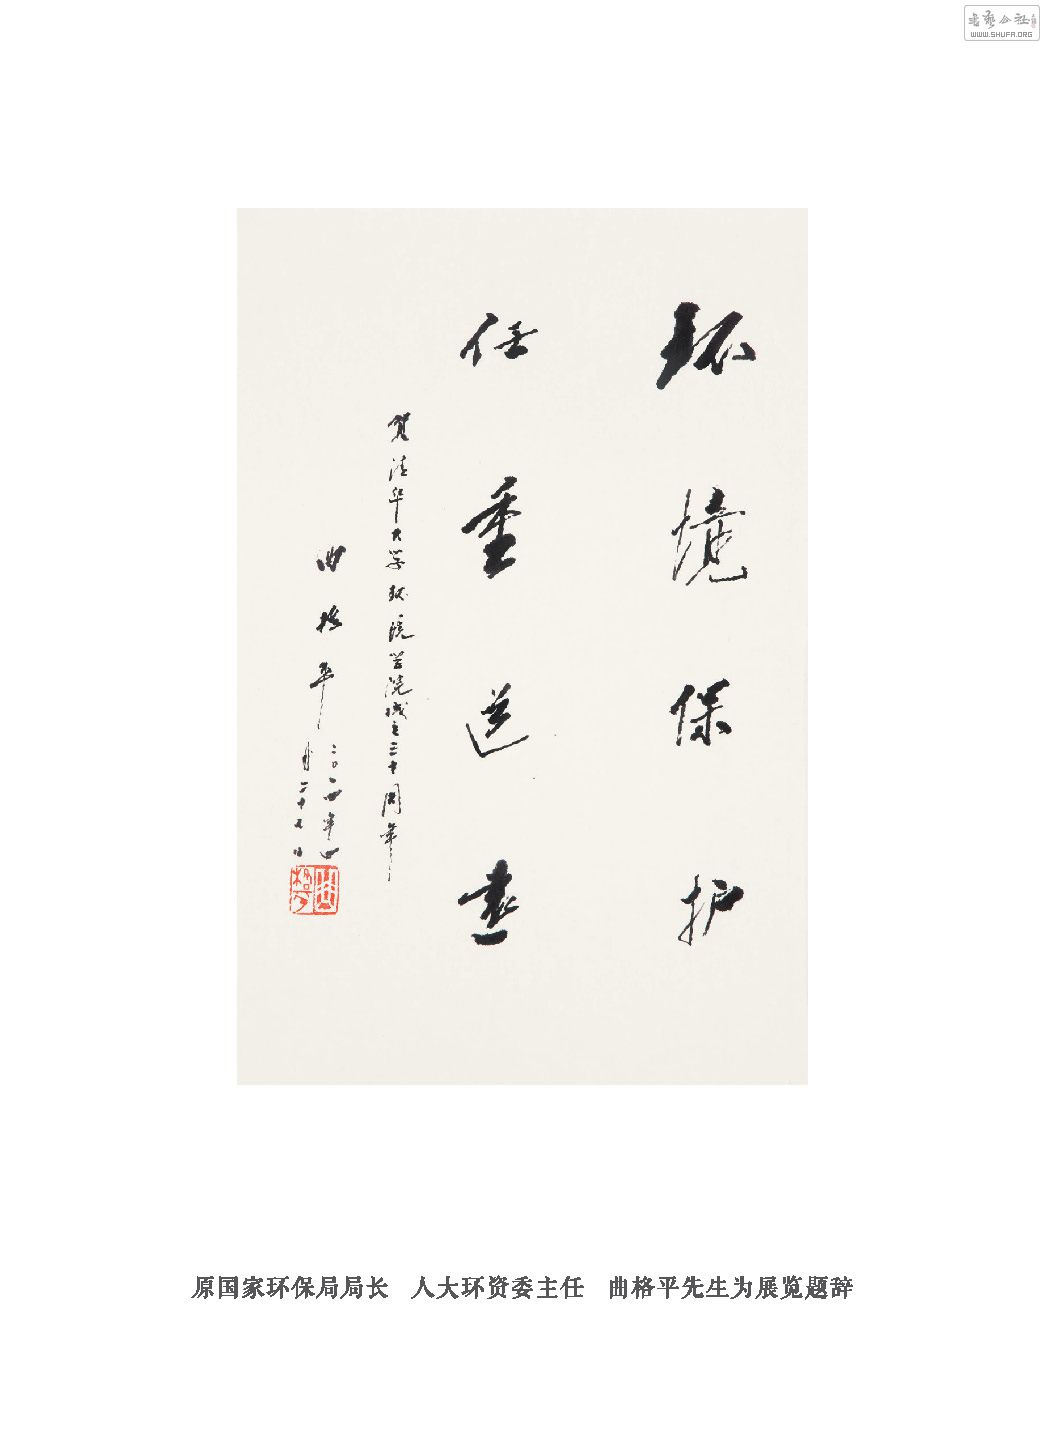 书艺公社
WWW.SHUFA.ORG
环境保护
任重道远
贺清华大学环境学院成立三十周年
曲格平
二〇一四年四
月二十九日
原国家环保局局长 人大环资委主任 曲格平先生为展览题辞